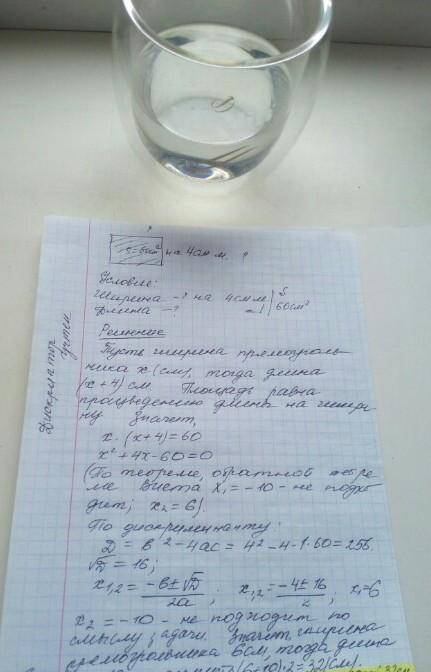 ?
S=60см² на 4см м. ?
Условие:
Ширина -? на 4см м | S
Длина -? | 60см²
Решение
Пусть ширина прямоуголь-
ника x (см), тогда длина
(x+4) см. Площадь равна
произведению длины на шири-
ну. Значит,
x·(x+4)=60
x²+4x-60=0
(По теореме, обратной теоре-
ме Виета x₁=-10 - не подхо-
дит; x₂=6).
По дискриминанту:
D=b²-4ac=4²-4·1·60=256.
√D=16;
x₁,₂=(-b±√D)/2a; x₁,₂=(-4±16)/2; x₁=6
x₂=-10 - не подходит по
смыслу задачи. Значит ширина
прямоугольника 6см, тогда длина
(6+10)·2=32(см).
Дискриминатор
учтен